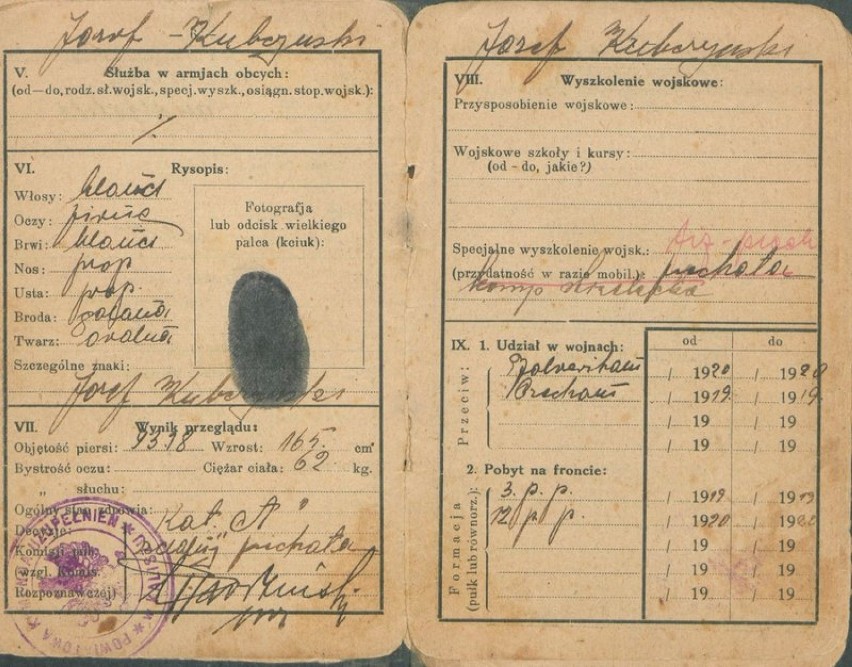 Józef Kubczyński
V. Służba w armjach obcych:
(od—do, rodz. sł. wojsk., specj. wyszk., osiągn. stop. wojsk.):
VI. Rysopis:
Włosy: blond
Oczy: piwne
Brwi: blond
Nos: prop
Usta: prop.
Broda:
Twarz: owalna
Szczególne znaki:
Fotografja
lub odcisk wielkiego
palca (kciuk):
Józef Kubczyński
VII. Wynik przeglądu:
Objętość piersi: Wzrost: 165 cm
Bystrość oczu: Ciężar ciała: 62 kg.
" słuchu:
Ogólny stan zdrowia:
Decyzje Kat. "A"
Komisji min. piechota
(wzgl. Komis.
Rozpoznawczej)
UZUPEŁNIEŃ * POWIATOWA
Józef Kubczyński
VIII. Wyszkolenie wojskowe:
Przysposobienie wojskowe:
Wojskowe szkoły i kursy:
(od - do, jakie?)
Specjalne wyszkolenie wojsk.:
(przydatność w razie mobil.): piechota
IX. 1. Udział w wojnach: od do
Przeciw:
/ 1920 / 1920
/ 1919 / 1919
/ 19 / 19
/ 19 / 19
2. Pobyt na froncie:
Formacja
(pułk lub równorz.):
3. p. p. / 1919 / 1919
12 p p. / 1920 / 1920
/ 19 / 19
/ 19 / 19
/ 19 / 19